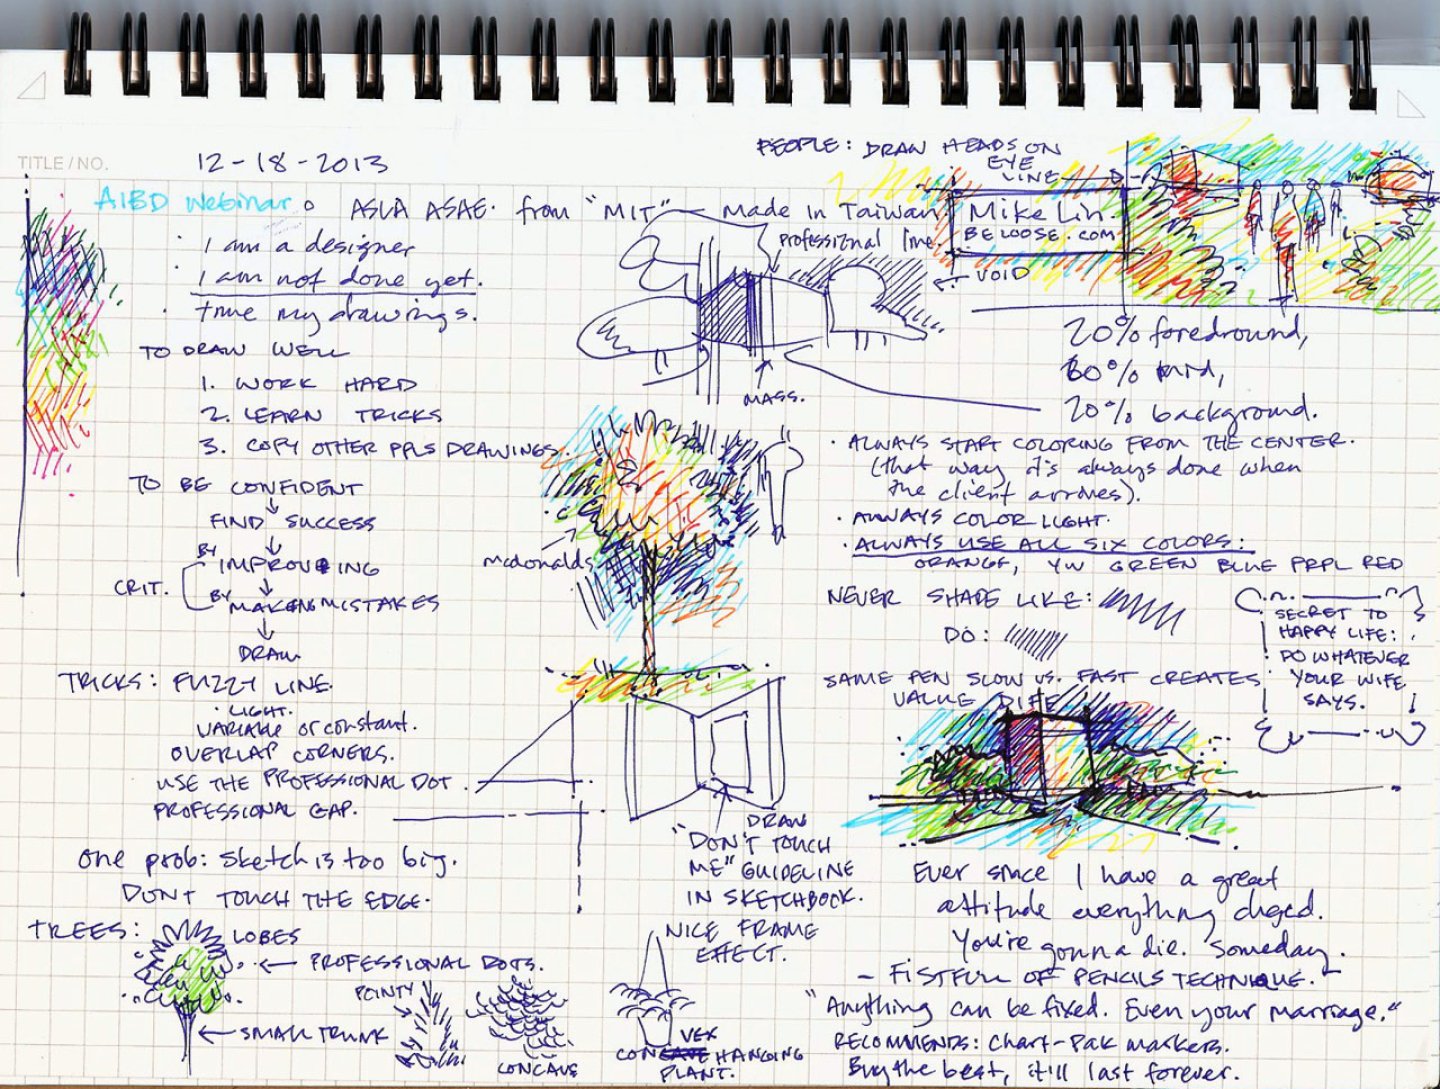 TITLE / NO.
12-18-2013
AIBD Webinar o ASLA ASAE. from "MIT" — Made in Taiwan
Mike Lin.
BELOOSE.COM
PEOPLE: DRAW HEADS ON
EYE
LINE
professional line.
VOID
MASS.
I am a designer
I am not done yet.
true my drawings.
TO DRAW WELL
1. WORK HARD
2. LEARN TRICKS
3. COPY OTHER PPLS DRAWINGS.
TO BE CONFIDENT
FIND SUCCESS
BY IMPROVING
CRIT.
BY MAKING MISTAKES
DRAW
mcdonalds
TRICKS: FUZZY LINE.
· LIGHT.
VARIABLE or constant.
OVERLAP CORNERS.
USE THE PROFESSIONAL DOT.
PROFESSIONAL GAP.
One prob: sketch is too big.
DON'T TOUCH THE EDGE.
TREES:
LOBES
PROFESSIONAL DOTS.
SMALL TRUNK
POINTY
CONCAVE
VEX
CONCAVE HANGING
PLANT.
DRAW
"DON'T TOUCH
ME" GUIDELINE
IN SKETCHBOOK.
NICE FRAME
EFFECT.
20% foredround,
60% mid,
20% background.
· ALWAYS START COLORING FROM THE CENTER.
(that way it's always done when
the client arrives).
· ALWAYS COLOR LIGHT.
· ALWAYS USE ALL SIX COLORS:
ORANGE, YW GREEN BLUE PRPL RED
NEVER SHADE LIKE:
DO:
SAME PEN SLOW VS. FAST CREATES
VALUE DIFF
SECRET TO
HAPPY LIFE:
DO WHATEVER
YOUR WIFE
SAYS.
Ever since I have a great
attitude everything chged.
You're gonna die. Someday.
- FISTFULL OF PENCILS TECHNIQUE.
"Anything can be fixed. Even your marriage."
RECOMMENDS: Chart-Pak markers.
Buy the best, it'll last forever.